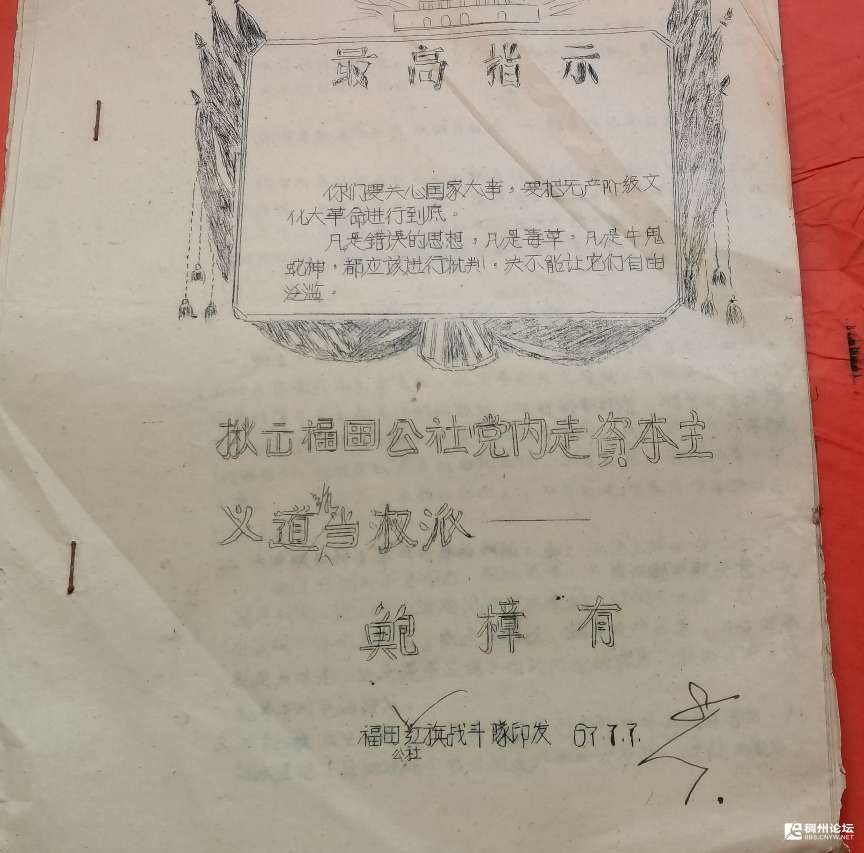 最高指示
你们要关心国家大事，要把无产阶级文
化大革命进行到底。
凡是错误的思想，凡是毒草，凡是牛鬼
蛇神，都应该进行批判，决不能让它们自由
泛滥。
揪出福田公社党内走资本主
义道当权派——
鲍樟有
福田红旗战斗队印发 67.7.7.
公社
稠州论坛
BBS.CNYW.NET